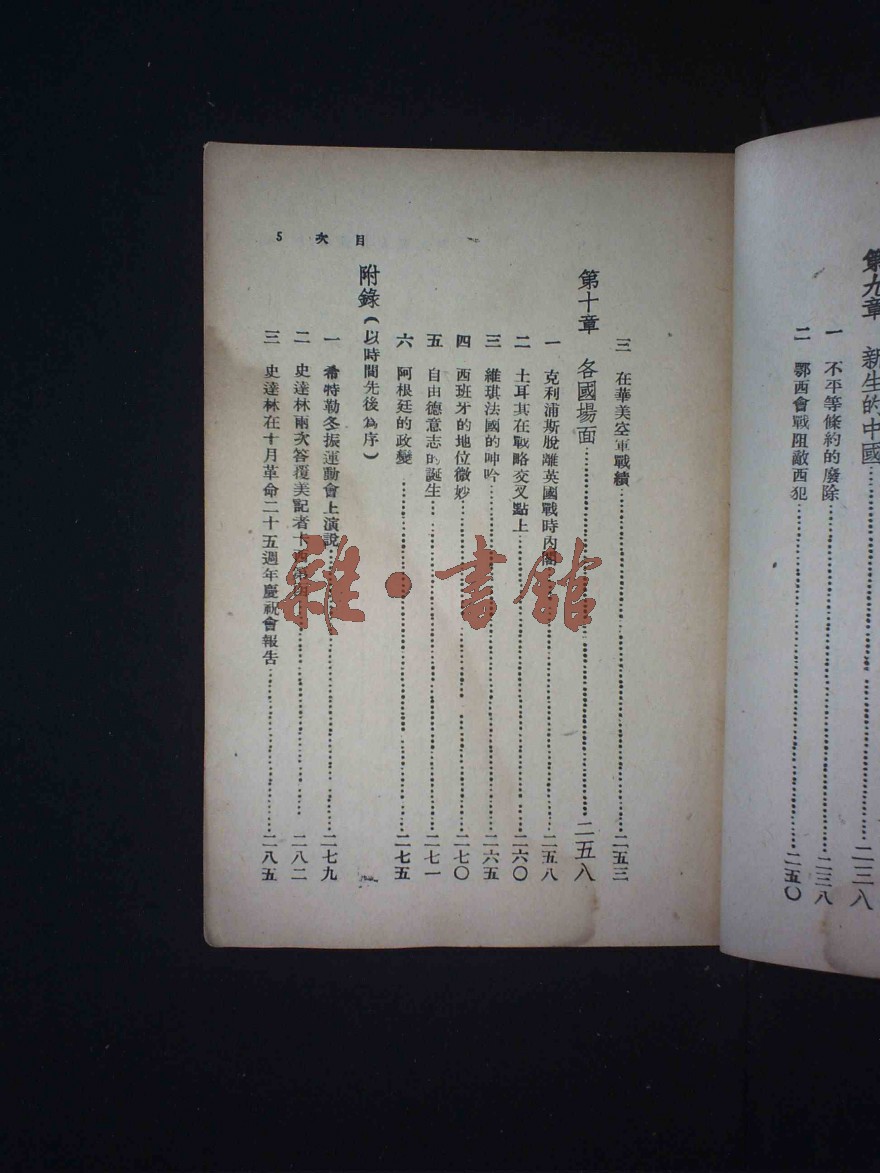 第九章 新生的中國……二三八
一 不平等條約的廢除……二三八
二 鄂西會戰阻敵西犯……二五〇
目次 5
三 在華美空軍戰績……二五三
第十章 各國場面……二五八
一 克利浦斯脫離英國戰時內閣……二五八
二 土耳其在戰略交叉點上……二六〇
三 維琪法國的呻吟……二六五
四 西班牙的地位微妙……二七〇
五 自由德意志的誕生……二七一
六 阿根廷的政變……二七五
附錄(以時間先後為序)
一 希特勒冬振運動會上演說……二七九
二 史達林兩次答覆美記者卡……二八二
三 史達林在十月革命二十五週年慶祝會報告……二八五
雜·書館